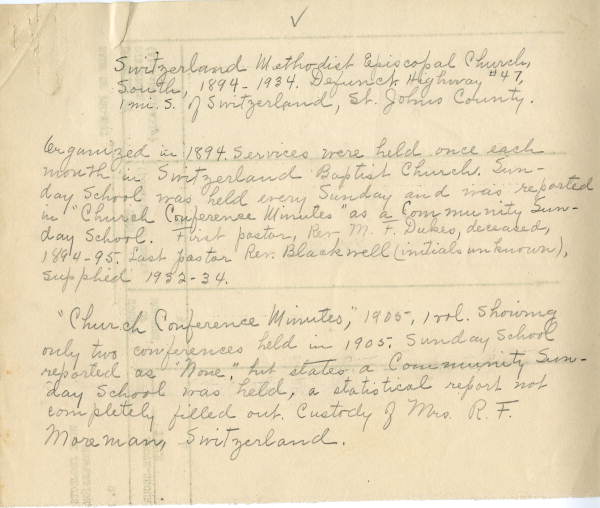 Switzerland Methodist Episcopal Church,
South, 1894-1934. Defunct. Highway #47,
1 mi. S. of Switzerland, St. Johns County.
Organized in 1894. Services were held once each
month in Switzerland Baptist Church. Sun-
day School was held every Sunday and was reported
in "Church Conference Minutes" as a Community Sun-
day School. First pastor, Rev. M. F. Dukes, deceased,
1894-95. Last pastor Rev. Blackwell (initials unknown),
supplied 1932-34.
"Church Conference Minutes," 1905, 1 vol. Showing
only two conferences held in 1905. Sunday School
reported as "None," but states a Community Sun-
day School was held, a statistical report not
completely filled out. Custody of Mrs. R. F.
Moreman, Switzerland.